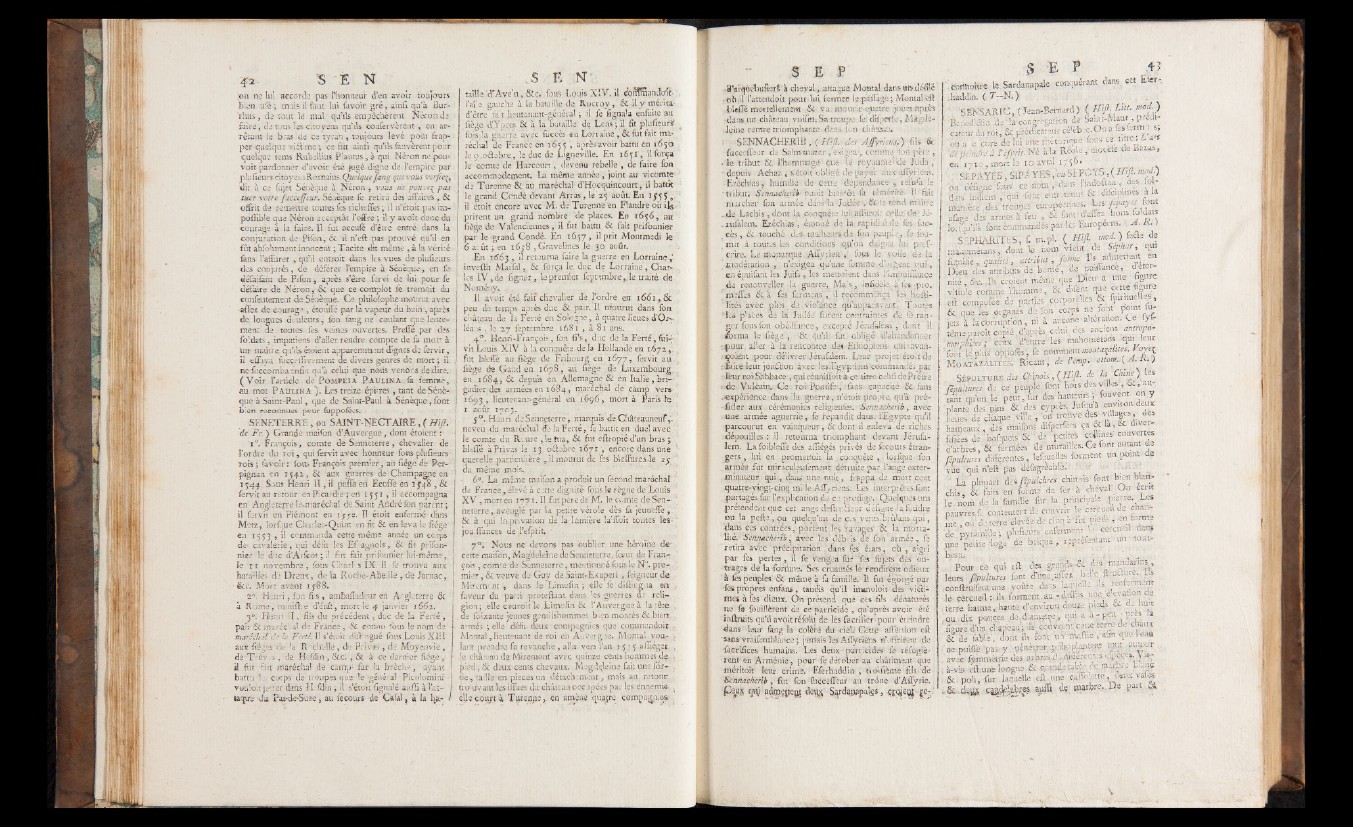 42 S E N
on ne lui accorde pas l'honneur d'en avoir toujours
bien usé; mais il faut lui savoir gré, ainsi qu'à Bur-
rhus, de tout le mal qu'ils empêchèrent Néron de
faire, de tous les citoyens qu'ils conservèrent, en ar-
rêtant le bras de ce tyran, toujours levé pour frap-
per quelque victime; ce fut ainsi qu'ils sauvèrent pour
quelque tems Rubellius Plautus, à qui Néron ne pou-
voit pardonner d'avoir été jugé digne de l'empire par
plusieurs citoyens Romains. Quelque sang que vous versiez,
dit à ce sujet Sénèque à Néron, vous ne pouvez pas
tuer votre successeur. Sénèque se retira des affaires, &
offrit de remettre toutes ses richesses; il n'étoit pas im-
possible que Néron acceptât l'offre; il y avoit donc du
courage à la faire. Il fut accusé d'être entré dans la
conjuration de Pison, & il n'est pas prouvé qu'il en
fût absolument innocent; Tacite dit même, à la vérité
sans l'assurer, qu'il entroit dans les vues de plusieurs
des conjurés, de déférer l'empire à Sénèque, en se
défaisant de Pison, après s'être servi de lui pour se
défaire de Néron, & que ce complot se tramoit du
consentement de Sénèque. Ce philosophe mourut avec
assez de courage, étouffé par la vapeur du bain, après
de longues douleurs, son sang ne coulant que lente-
ment de toutes ses veines ouvertes. Pressé par des
soldats, impatiens d'aller rendre compte de sa mort à
un maître qu'ils étoient apparemment dignes de servir,
il essaya successivement de divers genres de mort; il
ne succomba enfin qu'à celui que nous venons de dire.
(Voir l'article de POMPEIA PAULINA sa femme,
au mot PAULINA). Les treize épitres, tant de Sénè-
que à Saint-Paul, que de Saint-Paul à Sénèque, sont
bien reconnues pour supposées.
SENETERRE, ou SAINT-NECTAIRE, (Hist.
de Fr.) Grande maison d'Auvergne, dont étoient:
1°. François, comte de Senneterre, chevalier de
l'ordre du roi, qui servit avec honneur sous plusieurs
rois; savoir: sous François premier, au siége de Per-
pignan en 1542, & aux guerres de Champagne en
1544. Sous Henri II, il passa en Ecosse en 1548, &
servit au retour en Picardie; en 1551, il accompagna
en Angleterre le maréchal de Saint André son parent;
il servit en Piémont en 1552. Il étoit enfermé dans
Metz, lorsque Charles-Quint en fit & en leva le siége
en 1553, il commanda cette même année un corps
de cavalerie, qui défit les Espagnols, & fit prison-
nier le duc d'Arscot; il fut fait prisonnier lui-même,
le 11 novembre, sous Charles IX. Il se trouva aux
batailles de Dreux, de la Roche-Abeille, de Jarnac,
&c. Mort avant 1588.
2°. Henri, son fils, ambassadeur en Angleterre &
à Rome, ministre d'état, mort le 4 janvier 1662.
3°. Henri II, fils du précédent, duc de la Ferté,
pair & maréchal de France, & connu sous le nom de
maréchal de la Ferté. Il s'étoit distingué sous Louis XIII
aux siéges de la Rochelle, de Privas, de Moyenvic,
de Trèves, de Hesdin, &c., & à ce dernier siége,
il fut fait maréchal de camp sur la brèche, ayant
battu le corps de troupes que le général Picolomini
vouloit jetter dans Hesdin, il s'étoit signalé aussi à l'at-
taque du Pas-de-Suse, au secours de Casal, à la ba-
S E N
taille d'Avein, &c. sous Louis XIV. il commandoit
l'aîle gauche à la bataille de Rocroy, & il y mérita
d'être fait lieutenant-général, il se signala ensuite au
siége d'Ypres & à la bataille de Lens; il fit plusieurs
fois la guerre avec succès en Lorraine, & fut fait ma-
réchal de France en 1655, après avoir battu en 1650
le 9 octobre, le duc de Ligneville. En 1651, il força
le comte de Harcourt, devenu rebelle, de faire son
accommodement. La même année, joint au vicomte
de Turenne & au maréchal d'Hocquincourt, il battit
le grand Condé devant Arras, le 25 août. En 1555,
il étoit encore avec M. de Turenne en Flandre où ils
prirent un grand nombre de places. En 1656, au
siége de Valenciennes, il fut battu & fait prisonnier
par le grand Condé. En 1657, il prit Montmedi le
6 août; en 1658, Gravelines le 30 août.
En 1663, il retourna faire la guerre en Lorraine,
investit Marsal, & força le duc de Lorraine, Char-
les IV, de signer, le premier septembre, le traité de
Nomény.
Il avoit été fait chevalier de l'ordre en 1661, &
peu de temps après duc & pair. Il mourut dans son
château de la Ferté en Sologne, à quatre lieues d'Or-
léans, le 27 septembre 1681, à 81 ans.
4°. Henri-François, son fils, duc de la Ferté, sui-
vit Louis XIV à la conquête de la Hollande en 1672,
fut blessé au siége de Fribourg en 1677, servit au
siége de Gand en 1678, au siége de Luxembourg
en 1684, & depuis en Allemagne & en Italie, bri-
gadier des armées en 1684, maréchal de camp vers
1693, lieutenant-général en 1696, mort à Paris le
1 août 1703.
5°. Henri de Senneterre, marquis de Châteauneuf,
neveu du maréchal de la Ferté, se battit en duel avec
le comte du Roure, le tua, & fut estropié d'un bras;
blessé à Privas le 13 octobre 1671, encore dans une
querelle particulière, il mourut de ses blessures le 25
du même mois.
6°. La même maison a produit un second maréchal
de France, élevé à cette dignité sous le règne de Louis
XV, mort en 1771. Il fut père de M. le comte de Sen-
neterre, aveuglé par la petite vérole dès sa jeunesse,
& à qui la privation de la lumière laissoit toutes les
jouissances de l'esprit.
7°. Nous ne devons pas oublier une héroine de
cette maison, Magdeleine de Senneterre, sœur de Fran-
çois, comte de Senneterre, mentionné sous le N°. pre-
mier, & veuve de Guy de Saint-Exuperi, seigneur de
Miremont, dans le Limosin; elle se distingua en
faveur du parti protestant dans les guerres de reli-
gion; elle couroit le Limosin & l'Auvergne à la tête
de soixante jeunes gentilshommes bien montés & bien
armés; elle défit deux compagnies que commandoit
Montal, lieutenant de roi en Auvergne. Montal vou-
lant prendre sa revanche, alla vers l'an 1575 assiéger
le château de Miremont avec quinze cents hommes de
pied, & deux cents chevaux. Magdeleine fait une sor-
tie, taille en pièces un détachement, mais au retour
trouvant les issues du château occupées par les ennemis,
elle court à Turenne, en amène quatre compagnies
S E P
d'arquebusiers à cheval, attaque Montal dans un défilé
où il l'attendoit pour lui fermer le passage; Montal est
blessé mortellement & va mourir quatre jours après
dans un château voisin. Sa troupe se disperse, Magde-
leine rentre triomphante dans son château.
SENNACHERIB, (Hist. des Assyriens.) fils &
successeur de Salmanazar, exigea, comme son père,
le tribut & l'hommage que le royaume de Juda,
depuis Achaz, s'étoit obligé de payer aux assyriens.
Ezéchias, humilié de cette dépendance, refusa le
tribut. Sennacherib punit bientôt sa témérité. Il fait
marcher son armée dans la Judée, & se rend maître
de Lachis, dont la conquête lui assuroit celle de Jé-
rusalem. Ezéchias, étonné de la rapidité de ses suc-
cès, & touché des malheurs de son peuple, se sou-
mit à toutes les conditions qu'on daigna lui pres-
crire. Le monarque Assyrien, sous le voile de la
modération, n'exigea qu'une somme d'argent, qui,
en épuisant les Juifs, les mettoient dans l'impuissance
de renouveller la guerre. Mais, infidèle à ses pro-
messes & à ses sermens, il recommença les hosti-
lités avec plus de violence qu'auparavant. Toutes
les places de la Judée furent contraintes de se ran-
ger sous son obéissance, excepté Jérusalem, dont il
forma le siége, & qu'il fut obligé d'abandonner
pour aller à la rencontre des Ethiopiens qui avan-
çoient pour délivrer Jérusalem. Leur projet étoit de
faire leur jonction avec les Egyptiens commandés par
leur roi Sabbace, qui réunissoit à ce titre celui de Prêtre
de Vulcain. Ce roi Pontife, sans capacité & sans
expérience dans la guerre, n'étoit propre qu'à pré-
sider aux cérémonies religieuses. Sennacherib, avec
une armée aguerrie, se répandit dans l'Egypte qu'il
parcourut en vainqueur, & dont il enleva de riches
dépouilles: il retourna triomphant devant Jérusa-
lem. La foiblesse des assiégés privés de secours étran-
gers, lui en promettoit la conquête, lorsque son
armée fut miraculeusement détruite par l'ange exter-
minateur qui, dans une nuit, frappa de mort cent
quatre-vingt-cinq mille Assyriens. Les interprètes sont
partagés sur l'explication de ce prodige. Quelques uns
prétendent que cet ange destructeur désigne la foudre
ou la peste, ou quelqu'un de ces vents brûlans qui,
dans ces contrées, portent les ravages & la morta-
lité. Sennacherib, avec les débris de son armée, se
retira avec précipitation dans ses états, où, aigri
par ses pertes, il se vengea sur ses sujets des ou-
trages de la fortune. Ses cruautés le rendirent odieux
à ses peuples & même à sa famille. Il fut égorgé par
ses propres enfans, tandis qu'il immoloit des victi-
mes à ses dieux. On prétend que ces fils dénaturés
ne se souillèrent de ce parricide, qu'après avoir été
instruits qu'il avoit résolu de les sacrifier pour éteindre
dans leur sang la colère du ciel. Cette assertion est
sans vraisemblance; jamais les Assyriens n'offrirent de
sacrifices humains. Les deux parricides se réfugiè-
rent en Arménie, pour se dérober au châtiment que
méritoit leur crime. Eserhaddin, troisième fils de
Sennacherib, fut son successeur au trône d'Assyrie.
Ceux qui admettent deux Sardanapales, croient re-
S E P 43
connoître le Sardanapale conquérant dans cet Eser-
haddin. (T-N.)
SENSARIC, (Jean-Bernard) (Hist. Litt. mod.)
Bénédictin de la congrégation de Saint-Maur, prédi-
cateur du roi, & prédicateur célèbre. On a ses sermons;
on a à cure de lui une rhétorique sous ce titre: L'art
de peindre à l'esprit. Né à la Réole, diocèse de Bazas,
en 1710, mort le 10 avril 1756.
SEPAYES, SIPAYES, ou SEPOYS, (Hist. mod.)
on désigne sous ce nom, dans l'Indostan, des sol-
dats indiens, qui sont armés & disciplinés à la
manière des troupes européennes. Les sepayes font
usage des armes à feu, & sont d'assez bons soldats
lorsqu'ils sont commandés par les Européens. (A. R.)
SEPHARITES, s. m. pl. (Hist. mod.) secte de
musulmans, dont le nom vient de Sephat, qui
signifie, qualité, attribut, forme. Ils admettent en
Dieu des attributs de bonté, de puissance, d'éter-
nité, &c. Ils croient même que Dieu a une figure
visible comme l'homme, & disent que cette figure
est composée de parties corporelles & spirituelles,
& que les organes de son corps ne sont point su-
jets à la corruption, ni à aucune altération. Ce sys-
tème paroît copié d'après celui des anciens antropo-
morphites; ceux d'entre les mahométans qui leur
sont le plus opposés, se nomment moatazalites. Voyez
MOATAZALITES. Ricaut, de l'emp. ottom. (A. R.)
SÉPULTURE des Chinois, (Hist. de la Chine) les
sépultures de ce peuple sont hors des villes, &, au-
tant qu'on le peut, sur des hauteurs; souvent on y
plante des pins & des cyprès. Jusqu'à environ deux
lieues de chaque ville, on trouve des villages, des
hameaux, des maisons dispersées çà & là, & diver-
sifiées de bosquets & de petites collines couvertes
d'arbres, & fermées de murailles. Ce sont autant de
sépultures différentes, lesquelles forment un point de
vue qui n'est pas désagréable.
La plupart des sépulchres chinois sont bien blan-
chis, & faits en forme de fer à cheval. On écrit
le nom de la famille sur la principale pierre. Les
pauvres se contentent de couvrir le cercueil de chau-
me, ou de terre élevée de cinq à six pieds, en forme
de pyramide; plusieurs enferment le cercueil dans
une petite loge de brique, représentant un tom-
beau.
Pour ce qui est des grands & des mandarins,
leurs sépultures sont d'une assez belle structure. Ils
construisent une voûte dans laquelle ils renferment
le cercueil: ils forment au-dessus une élévation de
terre battue, haute d'environ douze pieds & de huit
ou dix pouces de diamètre, qui a à-peu près la
figure d'un chapeau; ils couvrent cette terre de chaux
& de sable, dont ils font un mastic, afin que l'eau
ne puisse pas y pénétrer; ils plantent tout autour
avec symmétrie des arbres de différentes espèces. Vis-
à-vis est une longue & grande table de marbre blanc
& poli, sur laquelle est une cassolette, deux vases
& deux candelabres aussi de marbre. De part &